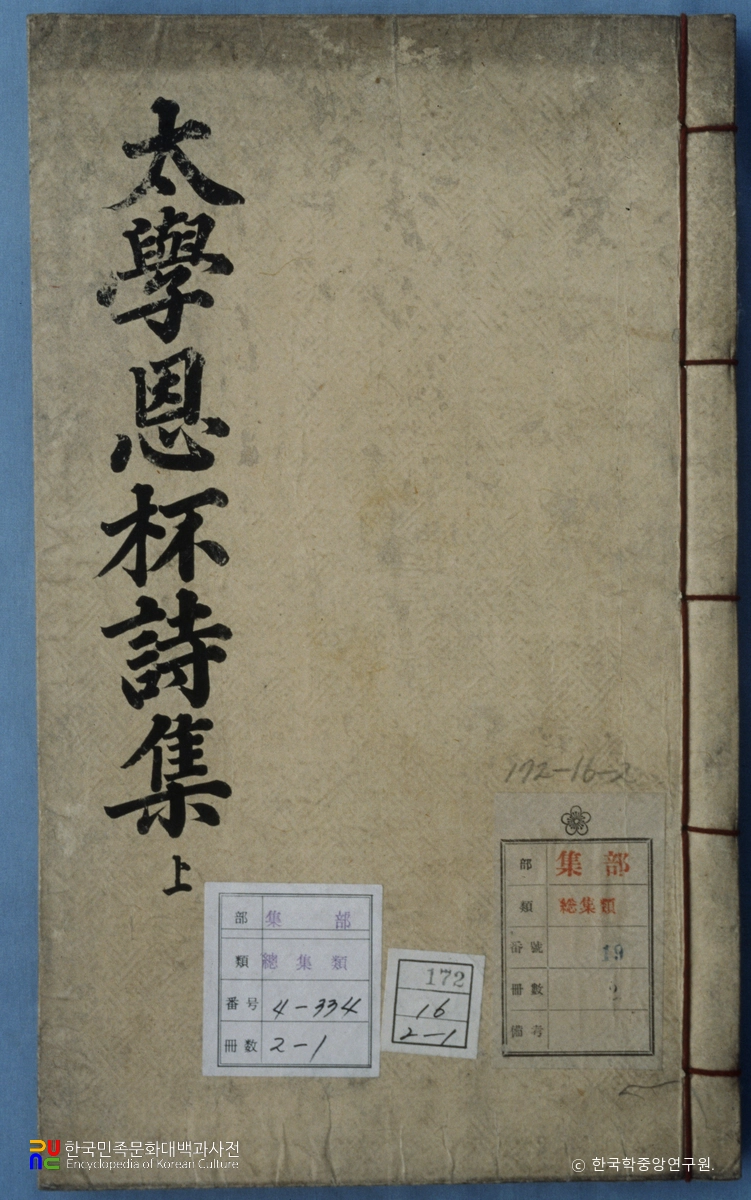 太學恩杯詩集 上
172-16-2
部 集部
類 総集類
番號 19
冊數 2
備考
部 集部
類 總集類
番号 4-334
冊数 2-1
172
16
2-1
한국민족문화대백과사전
Encyclopedia of Korean Culture
© 한국학중앙연구원.